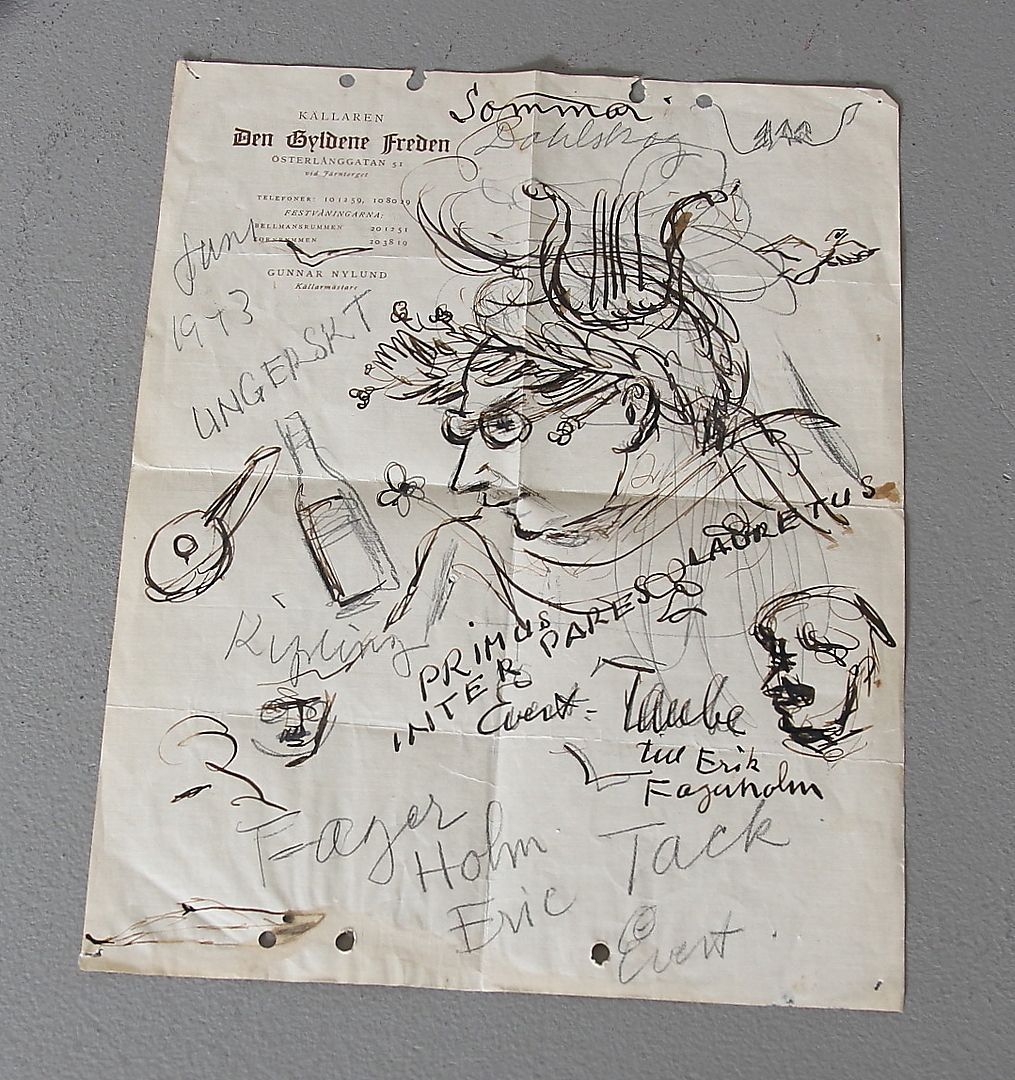 Sommar
Dahlskog
KÄLLAREN
Den Gyldene Freden
ÖSTERLÅNGGATAN 51
vid Järntorget
TELEFONER: 10 12 59, 10 80 29
FESTVÅNINGARNA:
BELLMANSRUMMEN 20 12 51
20 38 19
GUNNAR NYLUND
Källarmästare
Juni
1943
UNGERSKT
Kipling
PRIMUS
INTER PARES LAURETUS
Evert Taube
till Erik
Fagerholm
Fager
Holm
Eric
Tack
Evert